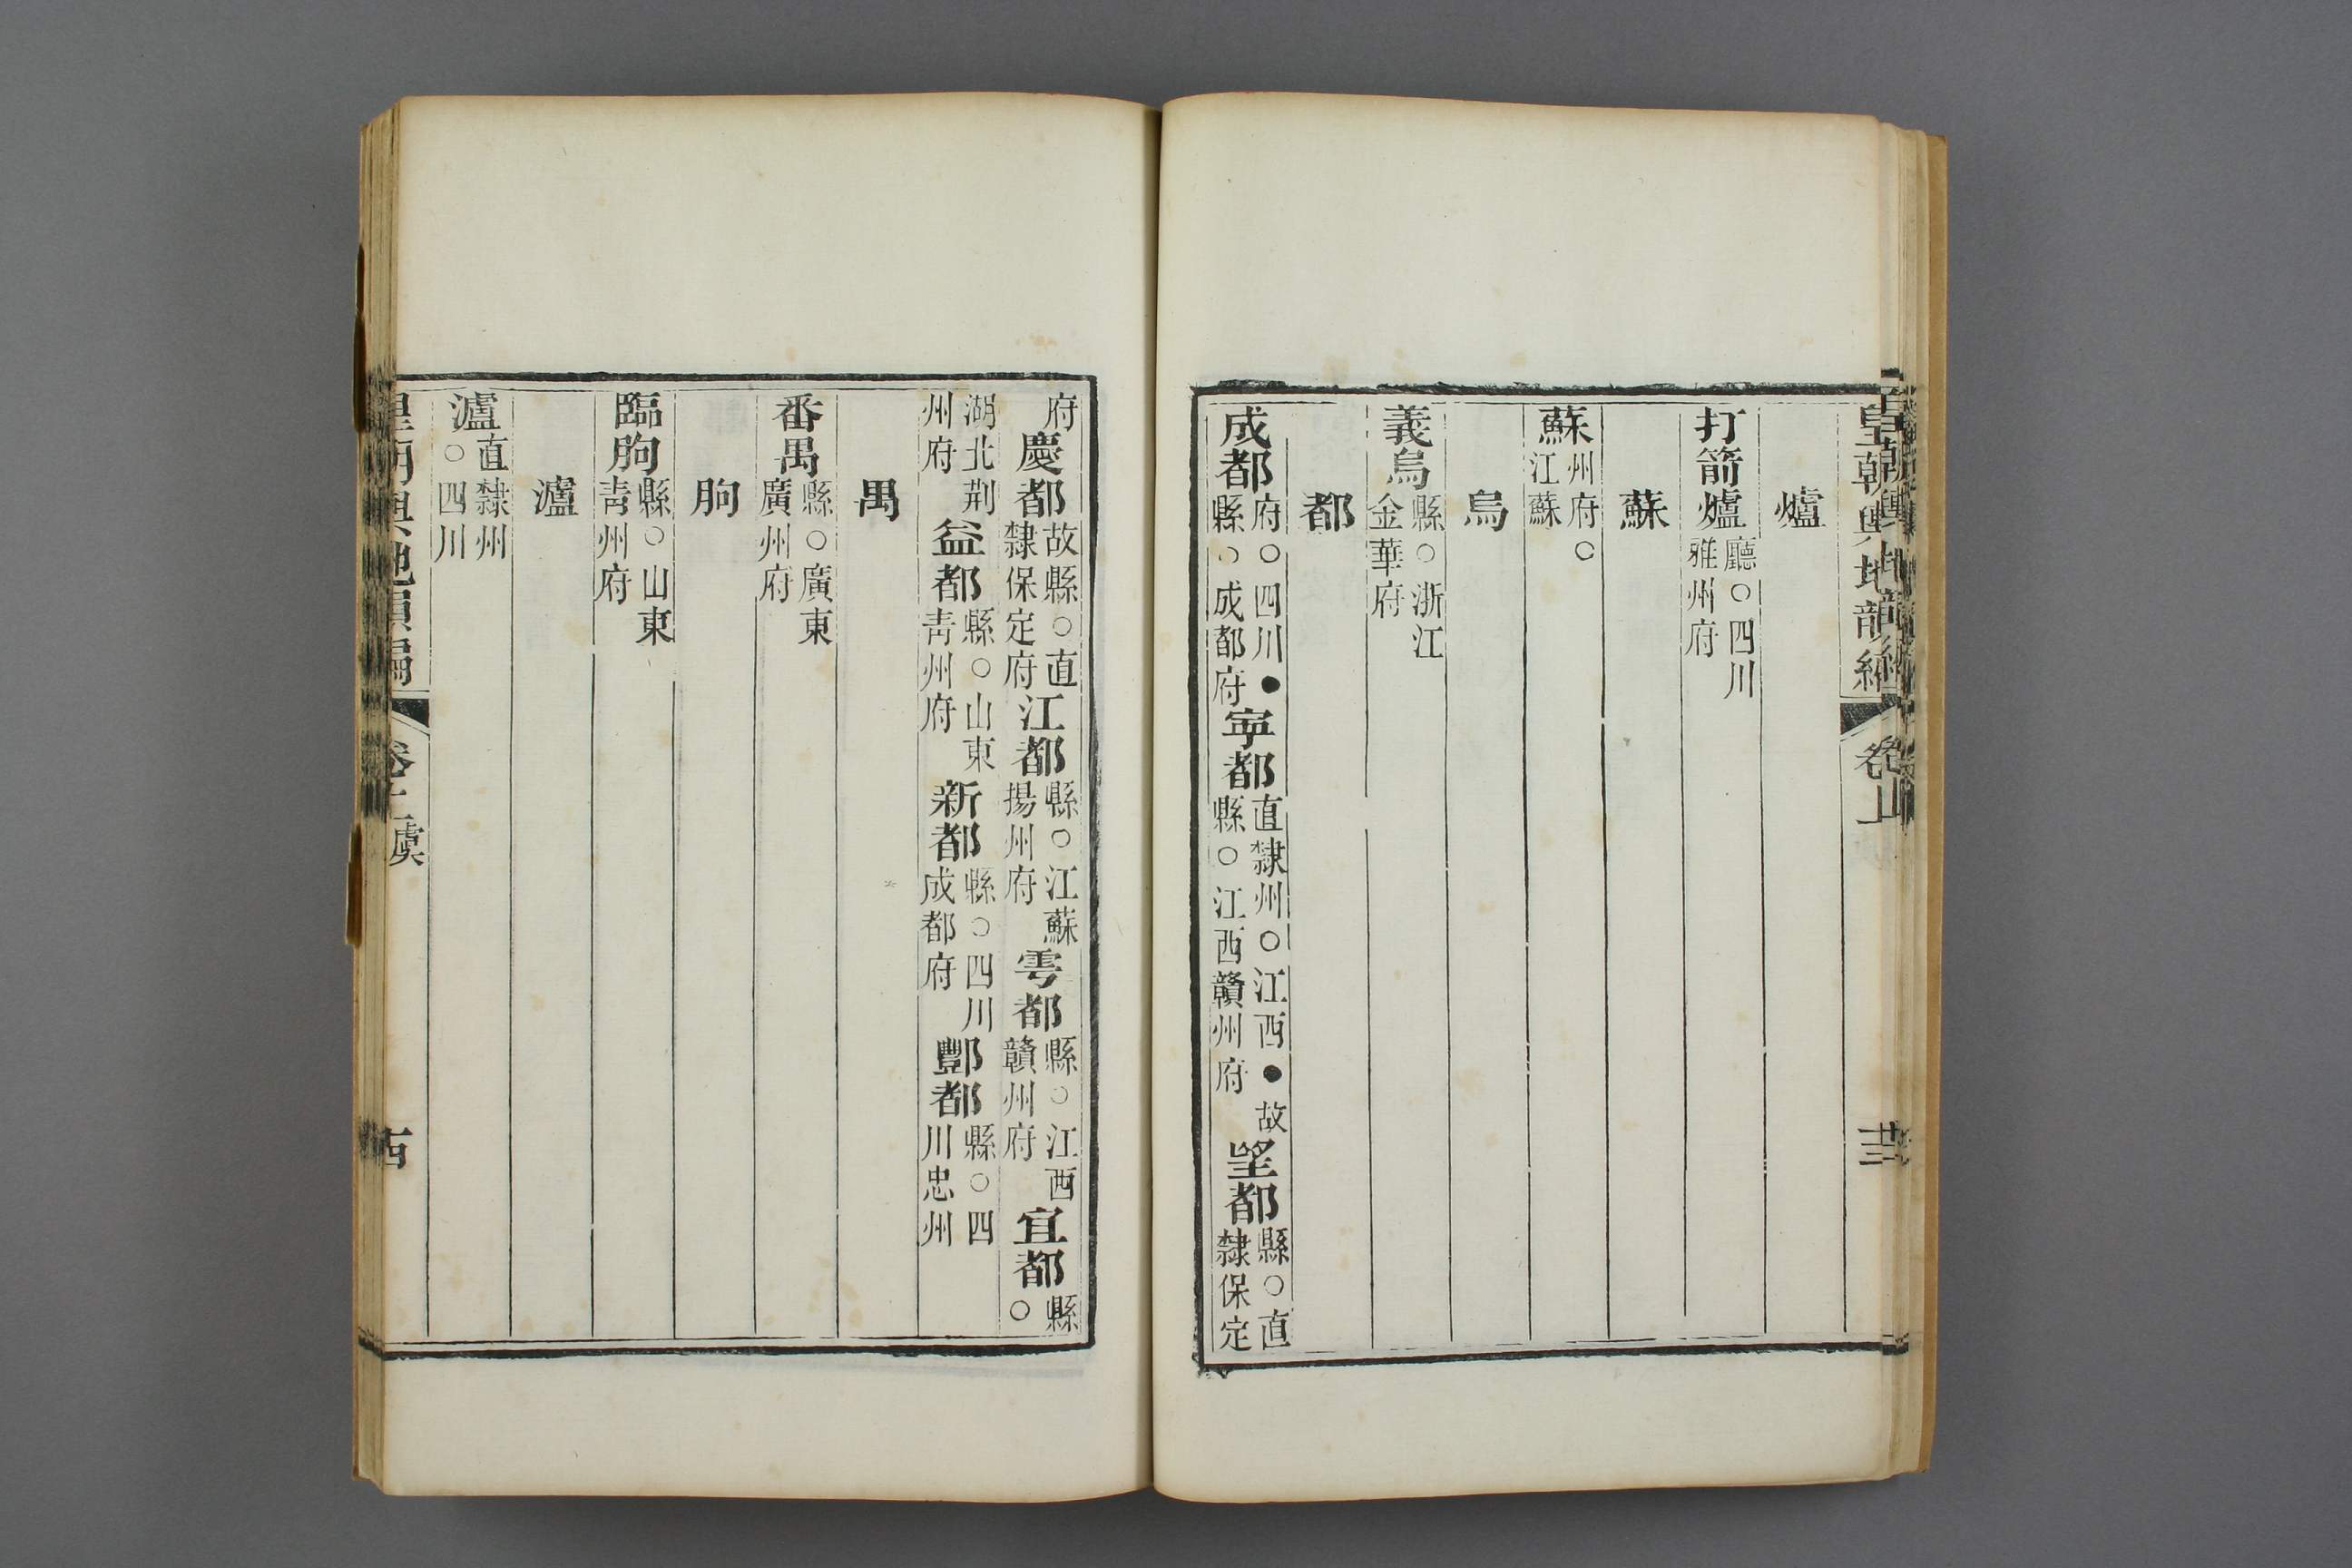 皇朝輿地韻編 卷上
爐
打箭爐廳○四川雅州府
蘇
蘇州府○江蘇
烏
義烏縣○浙江金華府
都
成都府○四川●縣○成都府寧都直隸州○江西●故縣○江西贛州府望都縣○直隸保定
府慶都故縣○直隸保定府江都縣○江蘇揚州府雩都縣○江西贛州府宜都縣○
湖北荆州府益都縣○山東青州府新都縣○四川成都府酆都縣○四川忠州
禺
番禺縣○廣東廣州府
朐
臨朐縣○山東青州府
瀘
瀘直隸州○四川
卷上 虞